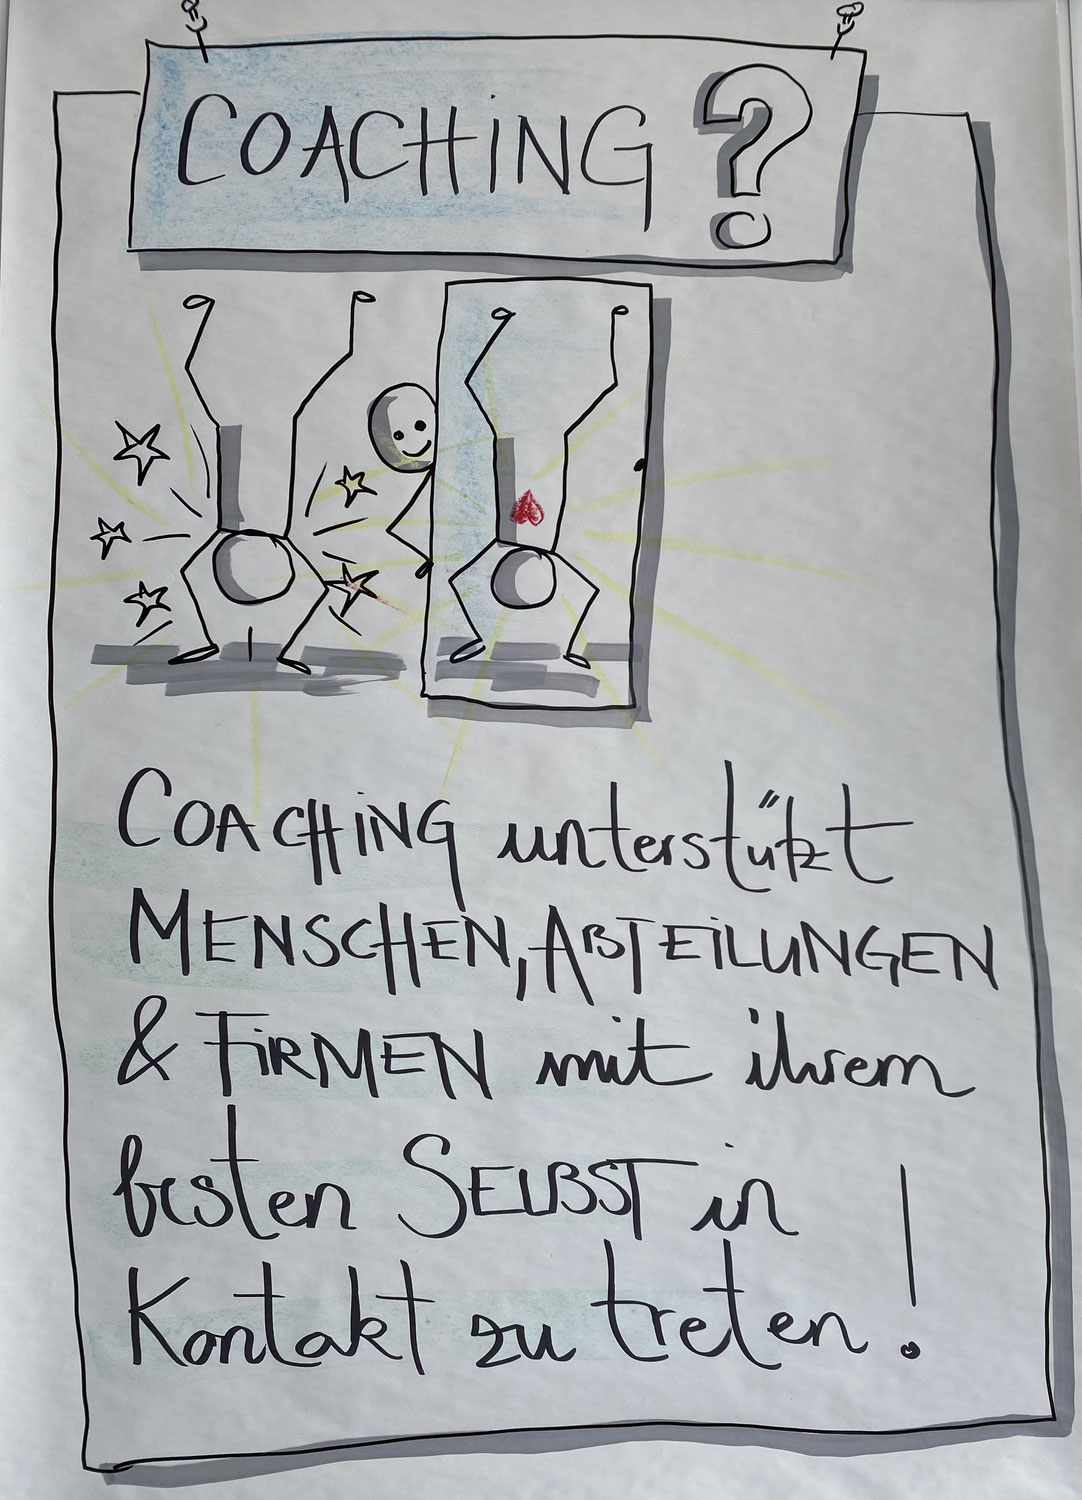 COACHING ?
COACHING unterstützt
MENSCHEN, ABTEILUNGEN
& FIRMEN mit ihrem
besten SELBST in
Kontakt zu treten!